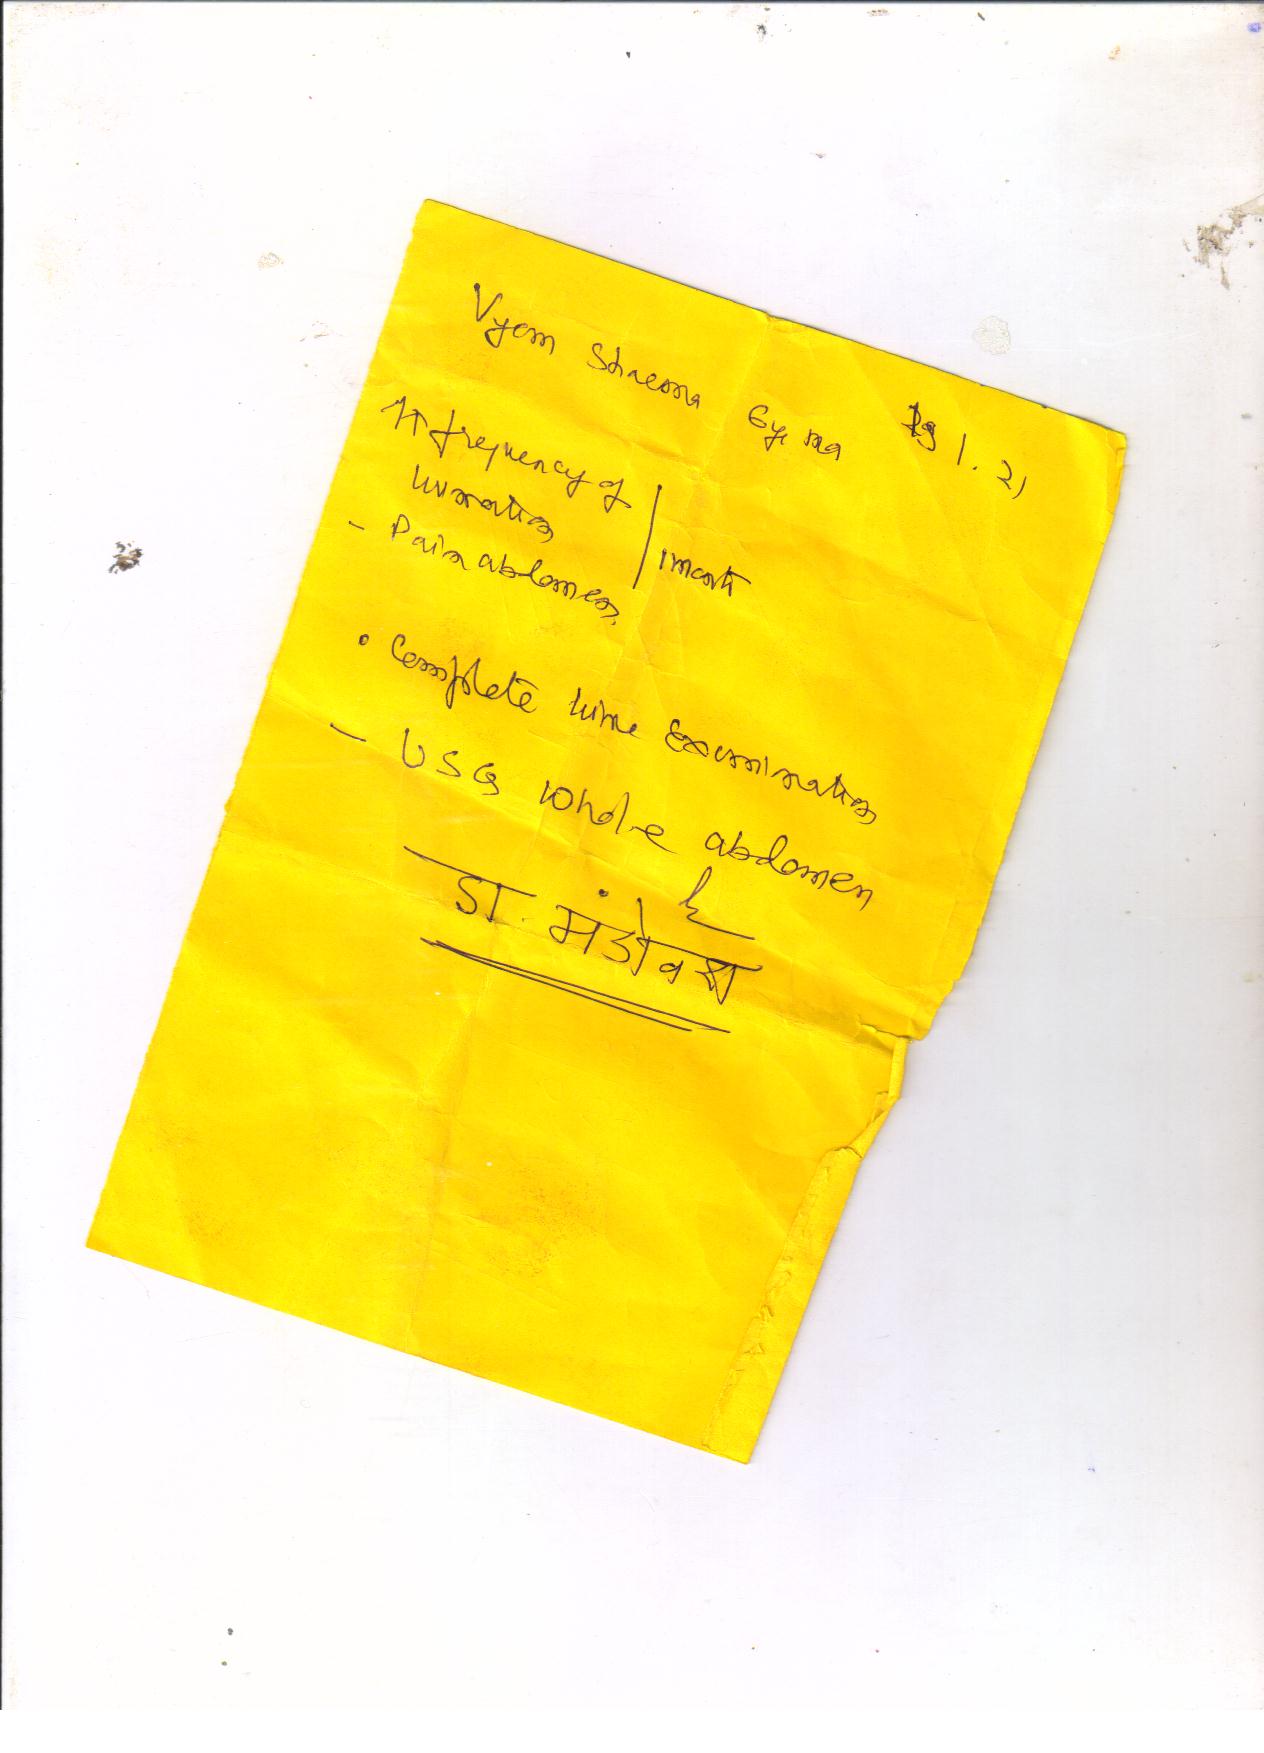 Vyom Sharma 6y. ma 29 1. 21
↑↑ frequency of
urination
- Pain abdomen
1 month
• Complete urine Examination
- USG whole abdomen
डा. मंडोवरा